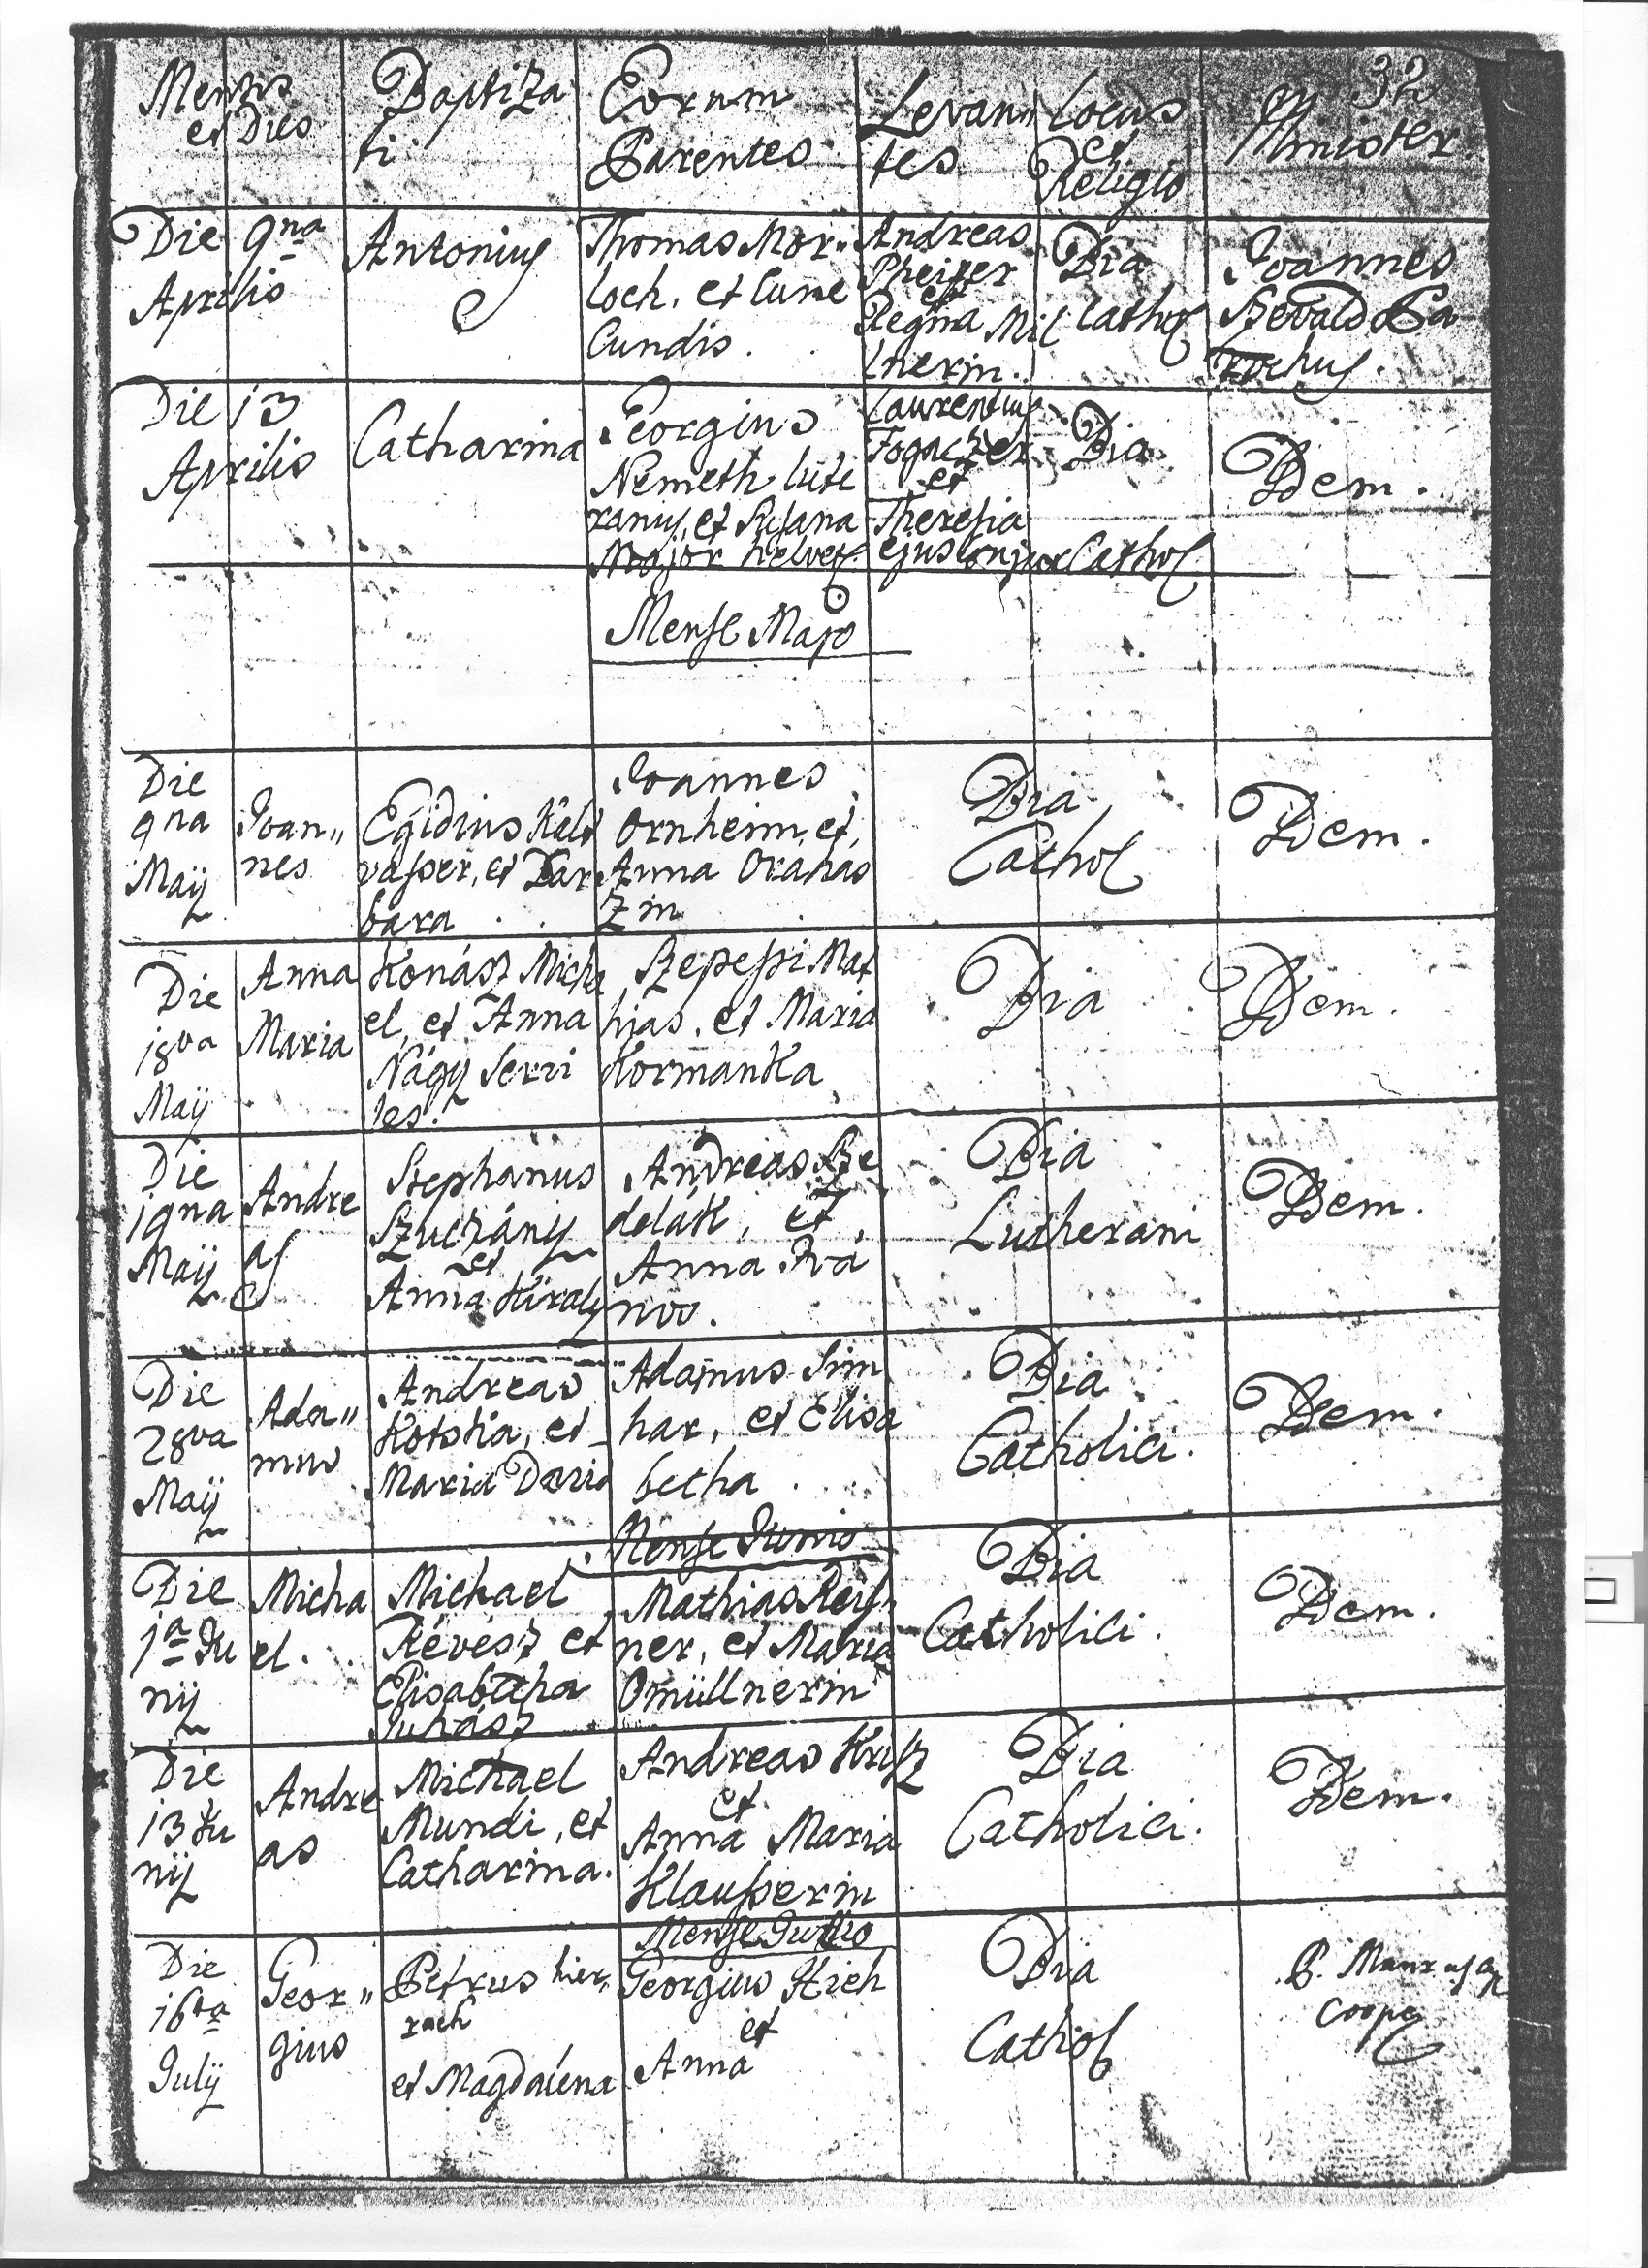 32
Mensis
et Dies
Baptiza
ti
Eorum
Parentes
Levan„
tes
Locus
et
Religio
Minister
Die 9na
Aprilis
Antonius
Thomas Mor„
loch, et Cune
Cundis.
Andreas
Pheifer
et
Regina Mil
lnerin.
Dia
Cathol
Joannes
Szevald Pa
rochus.
Die 13
Aprilis
Catharina
Georgius
Nemeth Luté
ranus, et Susana
Major helvet.
Laurentius
Fogaczer
et
Theresia
ejus Conjux
Dia
Cathol
Idem.
Mense Majo
Die
9na
Maij
Joan„
nes
Egidius Kalt
vasser, et Bar
bara
Joannes
Ornheim, et
Anna Oranas
zin
Dia
Cathol
Idem.
Die
18va
Maij
Anna
Maria
Konász Micha
el, et Anna
Nagy Servi
les.
Szepessi Mat
hias, et Maria
Kormanka
Dia
Idem.
Die
19na
Maij
Andre
as
Stephanus
Szuchány
et
Anna Király
Andreas Sze
delák, et
Anna Ivá
nvo.
Dia
Lutherani
Idem.
Die
28va
Maij
Ada„
mus
Andreas
Kotska, et
Maria David
Adamus Sim
har, et Elisa
betha.
Dia
Catholici.
Idem.
Mense Junio
Die
1a Ju
nij
Micha
el.
Michael
Révész et
Elisabetha
Juhász
Mathias Reis„
ner, et Maria
Omüllnerin
Dia
Catholici.
Idem.
Die
13 Ju
nij
Andre
as
Michael
Mundi, et
Catharina.
Andreas Krisz
et
Anna Maria
Klausserin
Dia
Catholici.
Idem.
Mense Julio
Die
16ta
Julij
Geor„
gius
Petrus hier„
rach
et Magdalena
Georgius Hieh
et
Anna
Dia
Cathol
P.
Coope